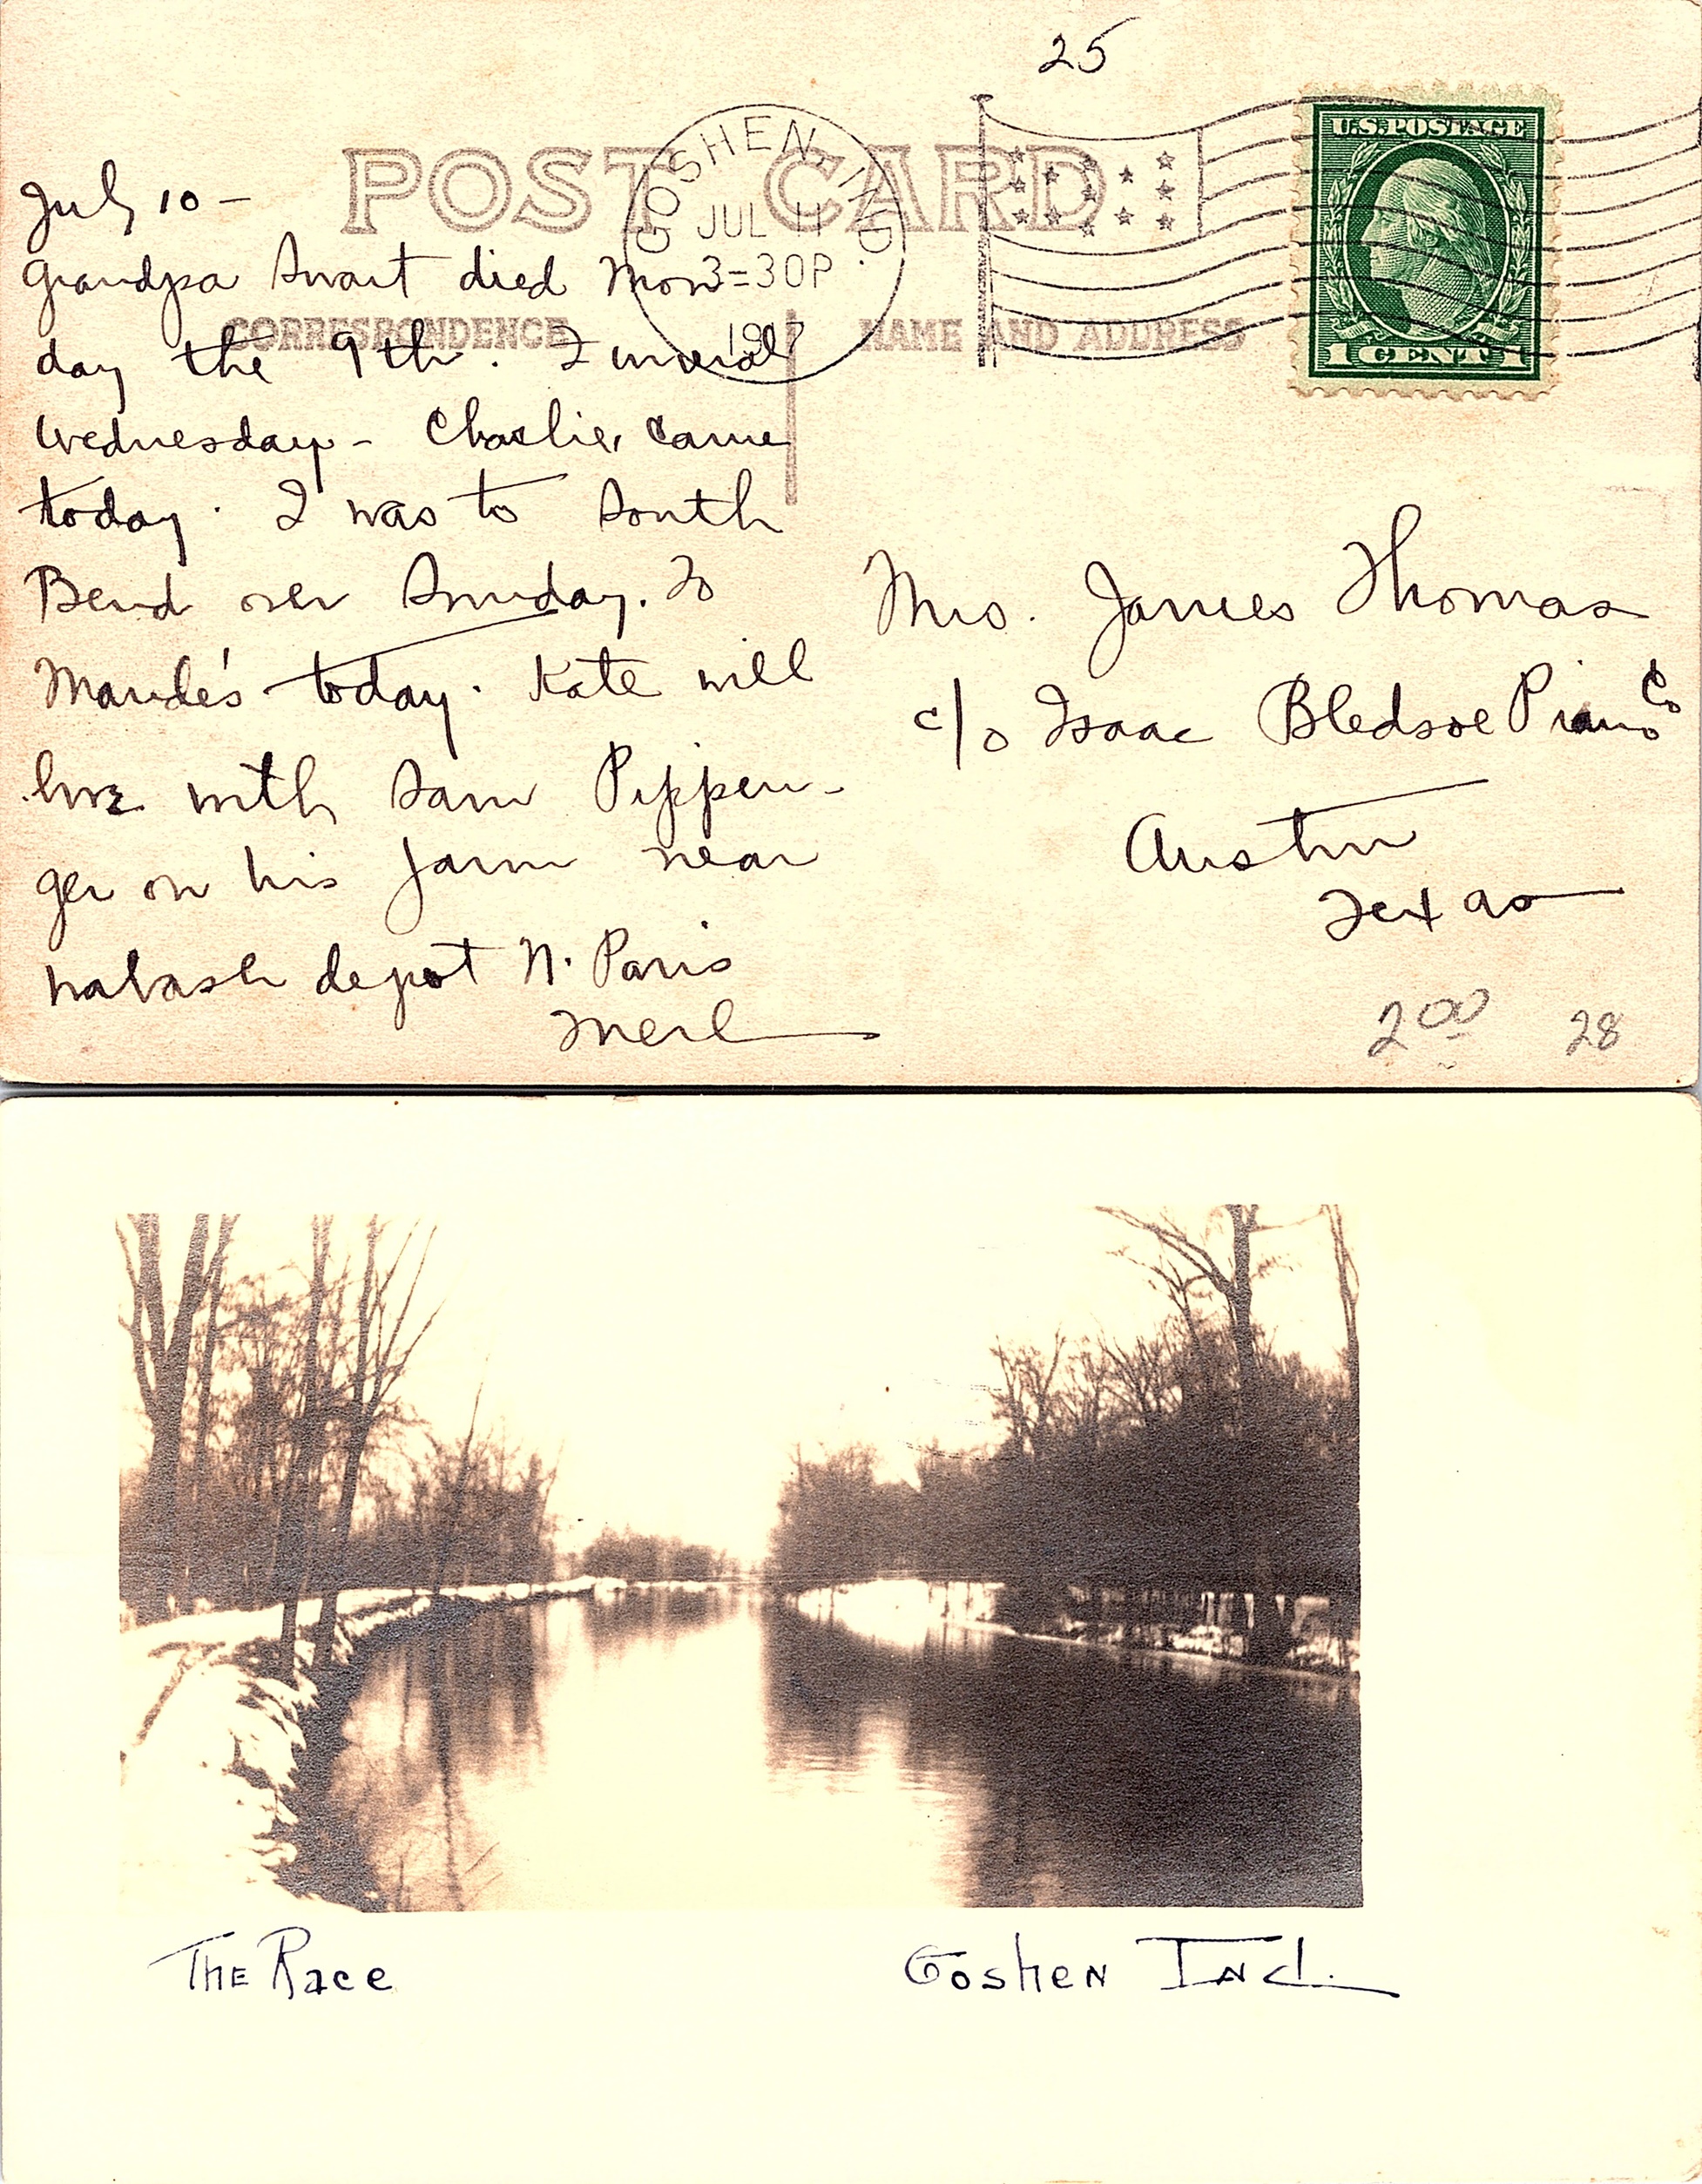 25
POST CARD
GOSHEN, IND.
JUL 11
3=30P
1917
U.S. POSTAGE
1 CENT 1
CORRESPONDENCE
NAME AND ADDRESS
July 10 –
Grandpa Swart died Mon
day the 9th. Funeral
Wednesday – Charlie came
today. I was to South
Bend over Sunday. To
Maude's today. Kate will
live with Sam Pippen-
ger on his farm near
Wabash depot N. Paris
Merl
Mrs. James Thomas
c/o Isaac Bledsoe Piano Co
Austin
Texas
2 00
28
The Race
Goshen Ind.